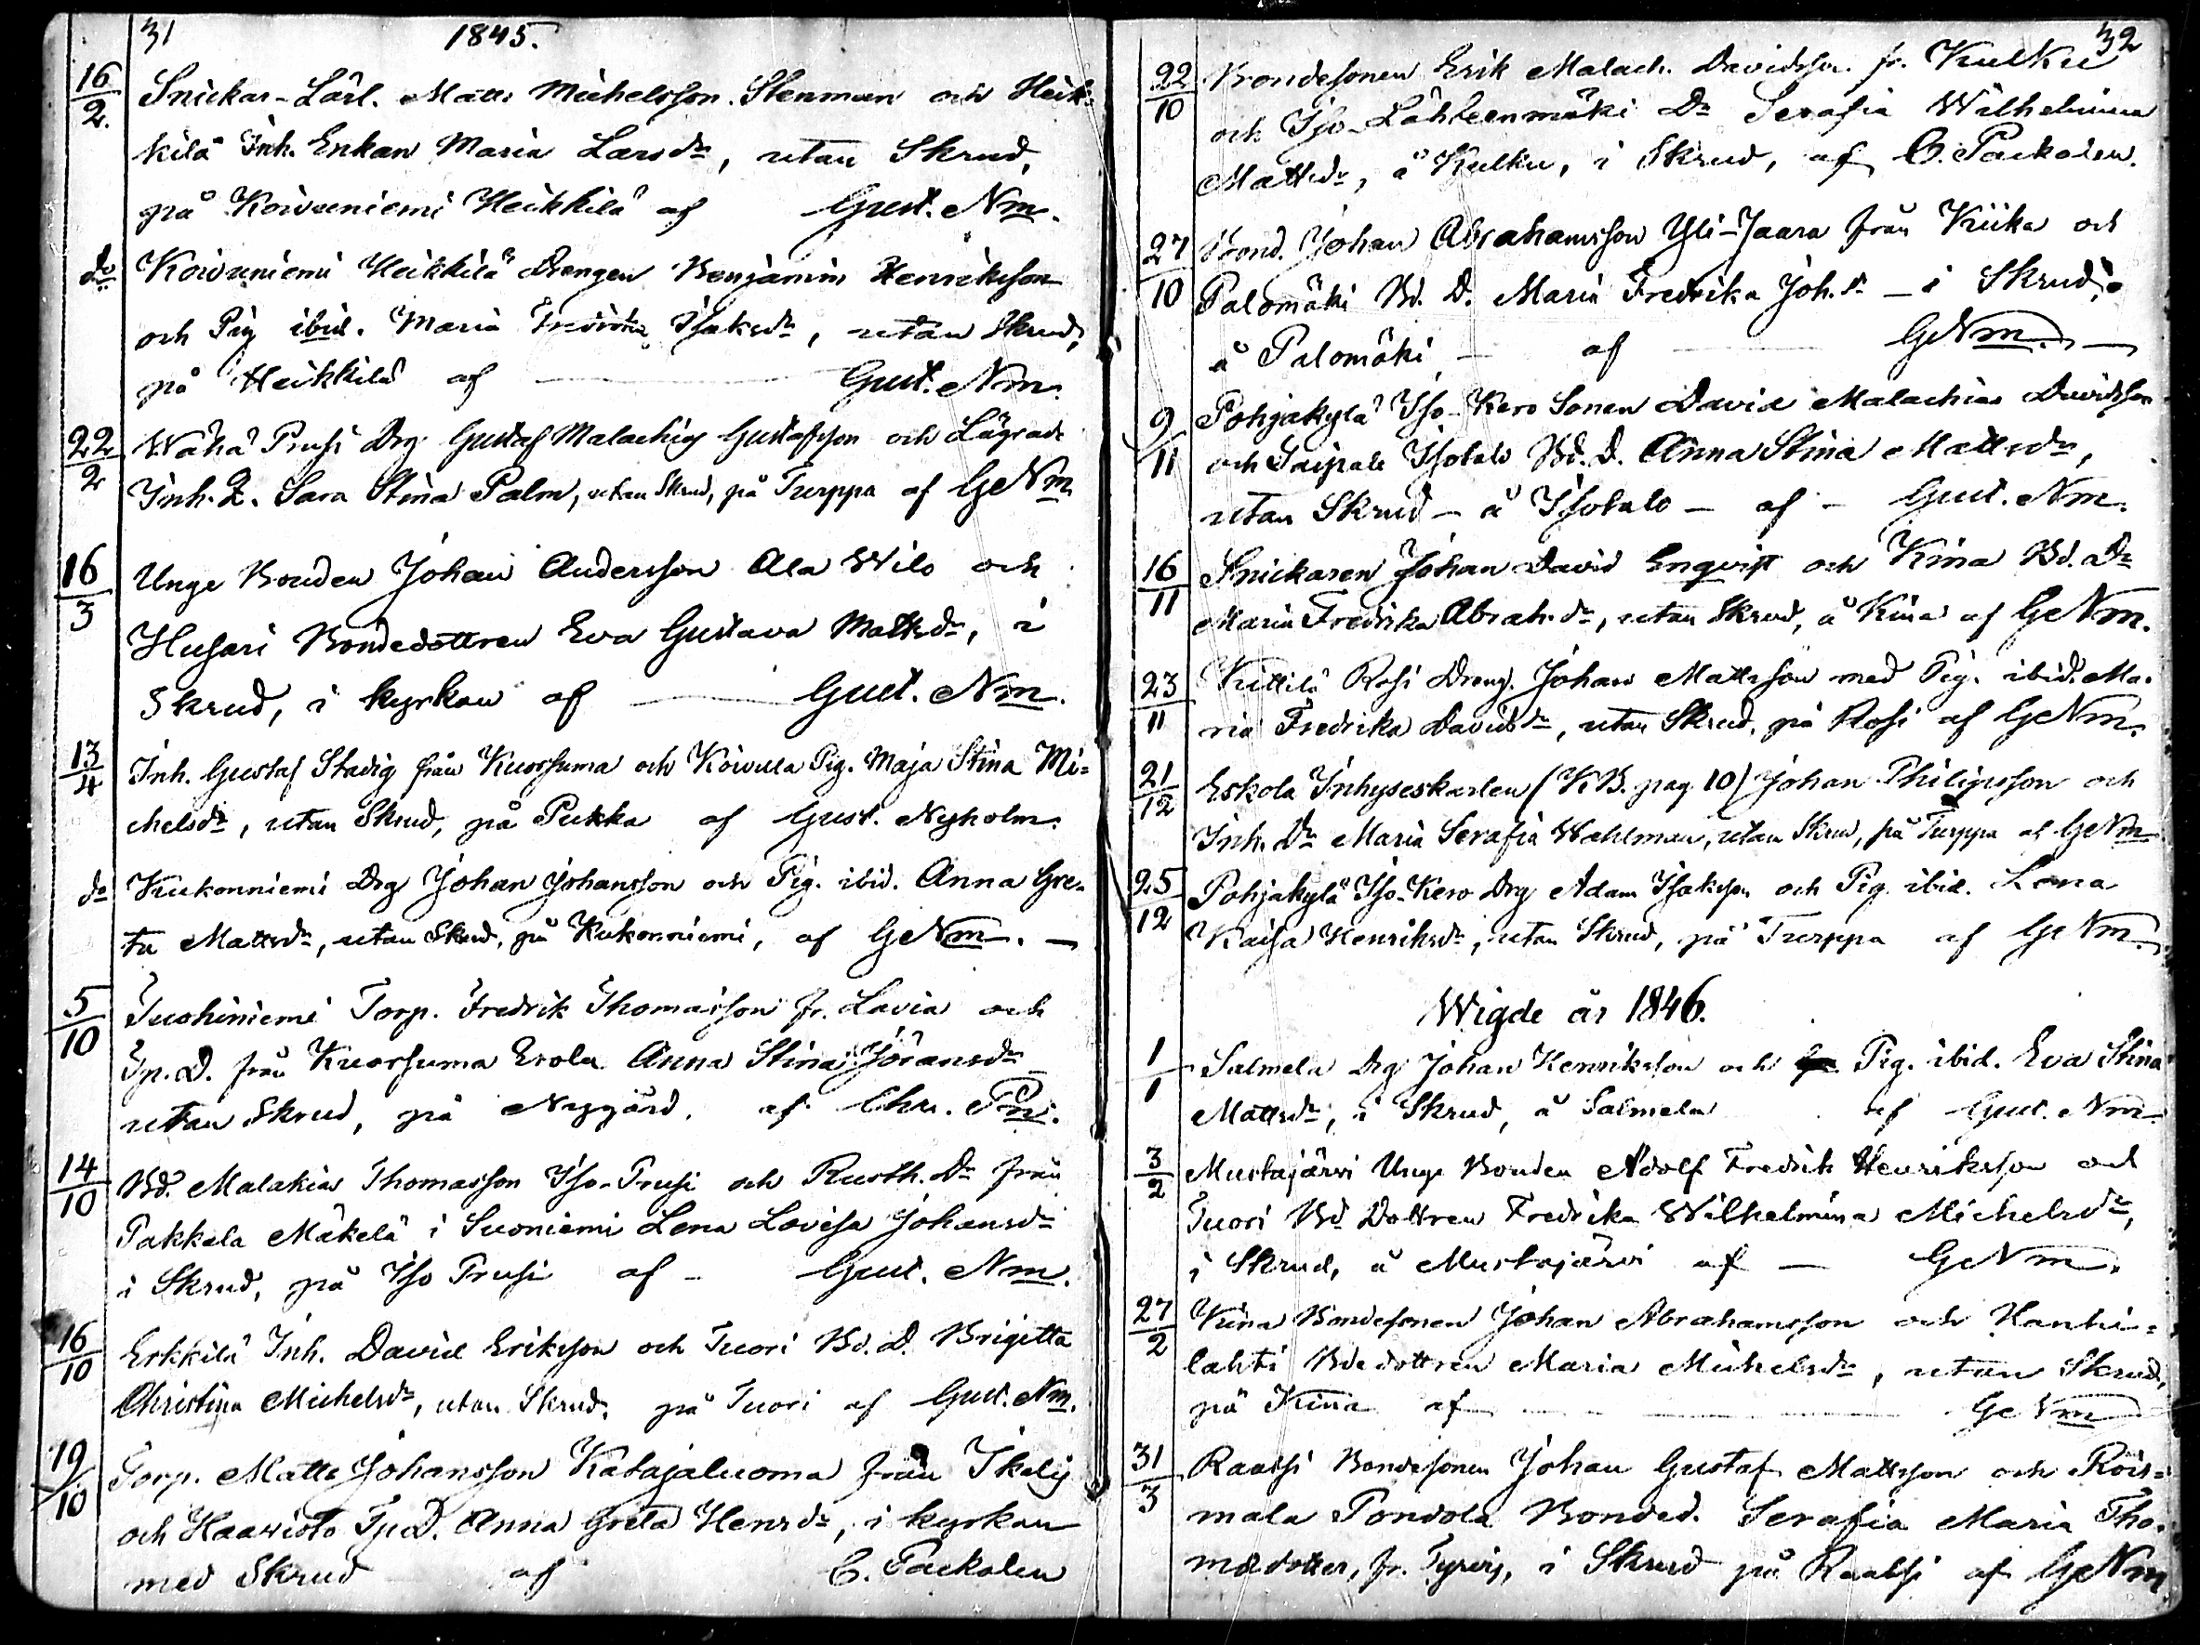 31 1845.
16/2. Snickar-Lärl. Matts Michelsson Stenman och Heik-
kilä Inh. Enkan Maria Larsdr, utan Skrud,
på Koivuniemi Heikkilä af Gust. Nm.
do Koivuniemi Heikkilä Drengen Benjamin Henriksson
och Pig ibid. Maria Fredrika Isaksdr, utan Skrud,
på Heikkilä af Gust. Nm.
22/2 Wähä Prusi Drg Gustaf Malachias Gustafsson och
Inh. Sara Stina Palm, utan Skrud, på Turppa af GeNm
16/3 Unge Bonden Johan Andersson Ala Wilo och
Husari Bondedottren Eva Gustava Mattsdr, i
Skrud, i kyrkan af Gust. Nm.
13/4 Inh. Gustaf Stadig från Kuorsuma och Koivula Pig. Maja Stina Mi-
chelsdr, utan Skrud, på Pukka af Gust. Nyholm.
do Kukonniemi Drg Johan Johansson och Pig. ibid. Anna Gre-
ta Mattsdr, utan Skrud, på Kukonniemi, af GeNm. —
5/10 Tuohiniemi Torp. Fredrik Thomasson fr. Lavia och
Tp. D. från Kuorsuma Erola Anna Stina Göransdr
utan Skrud, på Nygård. af Chr. Pn.
14/10 Bd. Malakias Thomasson Iso-Prusi och Rusth. Dr från
Pakkala Mäkelä i Suoniemi Lena Lovisa Johansdr
i Skrud, på Iso Prusi af - Gust. Nm.
16/10 Erkkilä Inh. David Eriksson och Tuori Bd. D. Brigitta
Christina Michelsdr, utan Skrud, på Tuori af Gust. Nm.
19/10 Torp. Matts Johansson Katajaluoma från Ikalis
och Haavisto Tp.D. Anna Greta Henrsdr, i kyrkan
med Skrud af C. Packalen
32
22/10 Bondesonen Erik Malach. Davidsson fr. Kulku
och Iso-Lähteenmäki Dr Serafia Wilhelmina
Mattsdr, å Kulku, i Skrud, af C. Packalen.
27/10 Bond. Johan Abrahamsson Yli-Jaara från Kiika och
Palomäki Bd. D. Maria Fredrika Joh.dr — i Skrud,
å Palomäki — af GeNm. —
9/11 Pohjakylä Iso-Kero Sonen David Malachias Davidsson
och Saipale Isotalo Bd. D. Anna Stina Mattsdr,
utan Skrud — å Isotalo — af - Gust. Nm.
16/11 Snickaren Johan David Enqvist och Kina Bd. Dr
Maria Fredrika Abrah.dr, utan Skrud, å Kina af GeNm.
23/11 Kuttilä Rosi Dreng. Johan Mattsson med Pig. ibid. Ma-
ria Fredrika Davidsdr, utan Skrud, på Rosi af GeNm.
21/12 Eskola Inhyseskarlen (KB. pag 10) Johan Philipsson och
Inh. Dr Maria Serafia Wahlman, utan Skrud, på Turppa af GeNm
25/12 Pohjakylä Iso-Kero Drg Adam Isaksson och Pig. ibid. Lena
Kaisa Henriksdr, utan Skrud, på Turppa af GeNm.
Wigde år 1846.
1/1 Salmela Drg Johan Henriksson och Pig. ibid. Eva Stina
Mattsdr, i Skrud, å Salmela af Gust. Nm.
3/2 Mustajärvi Unge Bonden Adolf Fredrik Henriksson och
Tuori Bd Dottren Fredrika Wilhelmina Michelsdr,
i Skrud, å Mustajärvi af — GeNm.
27/2 Kina Bondesonen Johan Abrahamsson och Hanhi-
lahti Bdedottren Maria Michelsdr, utan Skrud,
på Kina af GeNm
31/3 Raatsi Bondesonen Johan Gustaf Mattsson och Rois-
mala Pondola Bonded. Serafia Maria Tho-
mædotter, fr. Tyrvis, i Skrud på Raatsi af GeNm